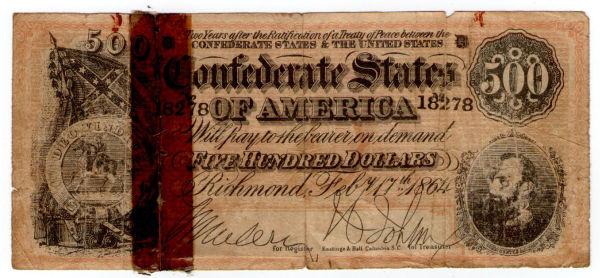 500
Two Years after the Ratification of a Treaty of Peace between the
CONFEDERATE STATES & THE UNITED STATES
Confederate States
500
18278
OF AMERICA
18278
Will pay to the bearer on demand
FIVE HUNDRED DOLLARS
DEO VINDICE
Richmond, Feby 17th 1864
for Register
Keatinge & Ball, Columbia S.C.
for Treasurer